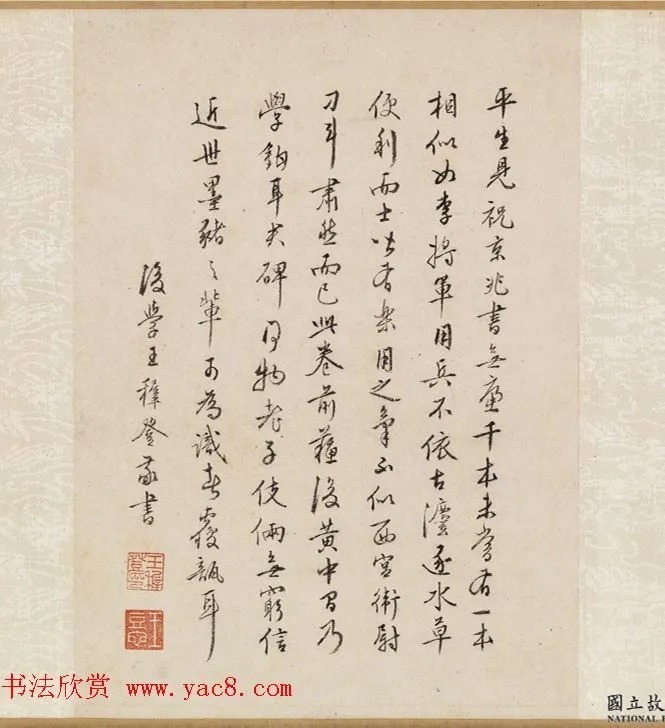 平生見祝京兆書無慮千本未嘗有一本
相似如李將軍用兵不依古灋逐水草
便利而士皆有樂用之氣不似西宮衛尉
刁斗肅然而已此卷前蘇後黃中間乃
學碑何物老子伎倆無窮信
近世墨豬之輩可為識者覆瓿耳
後學王穉登敬書
王穉登印
书法欣赏 www.yac8.com
國立故
NATIONAL